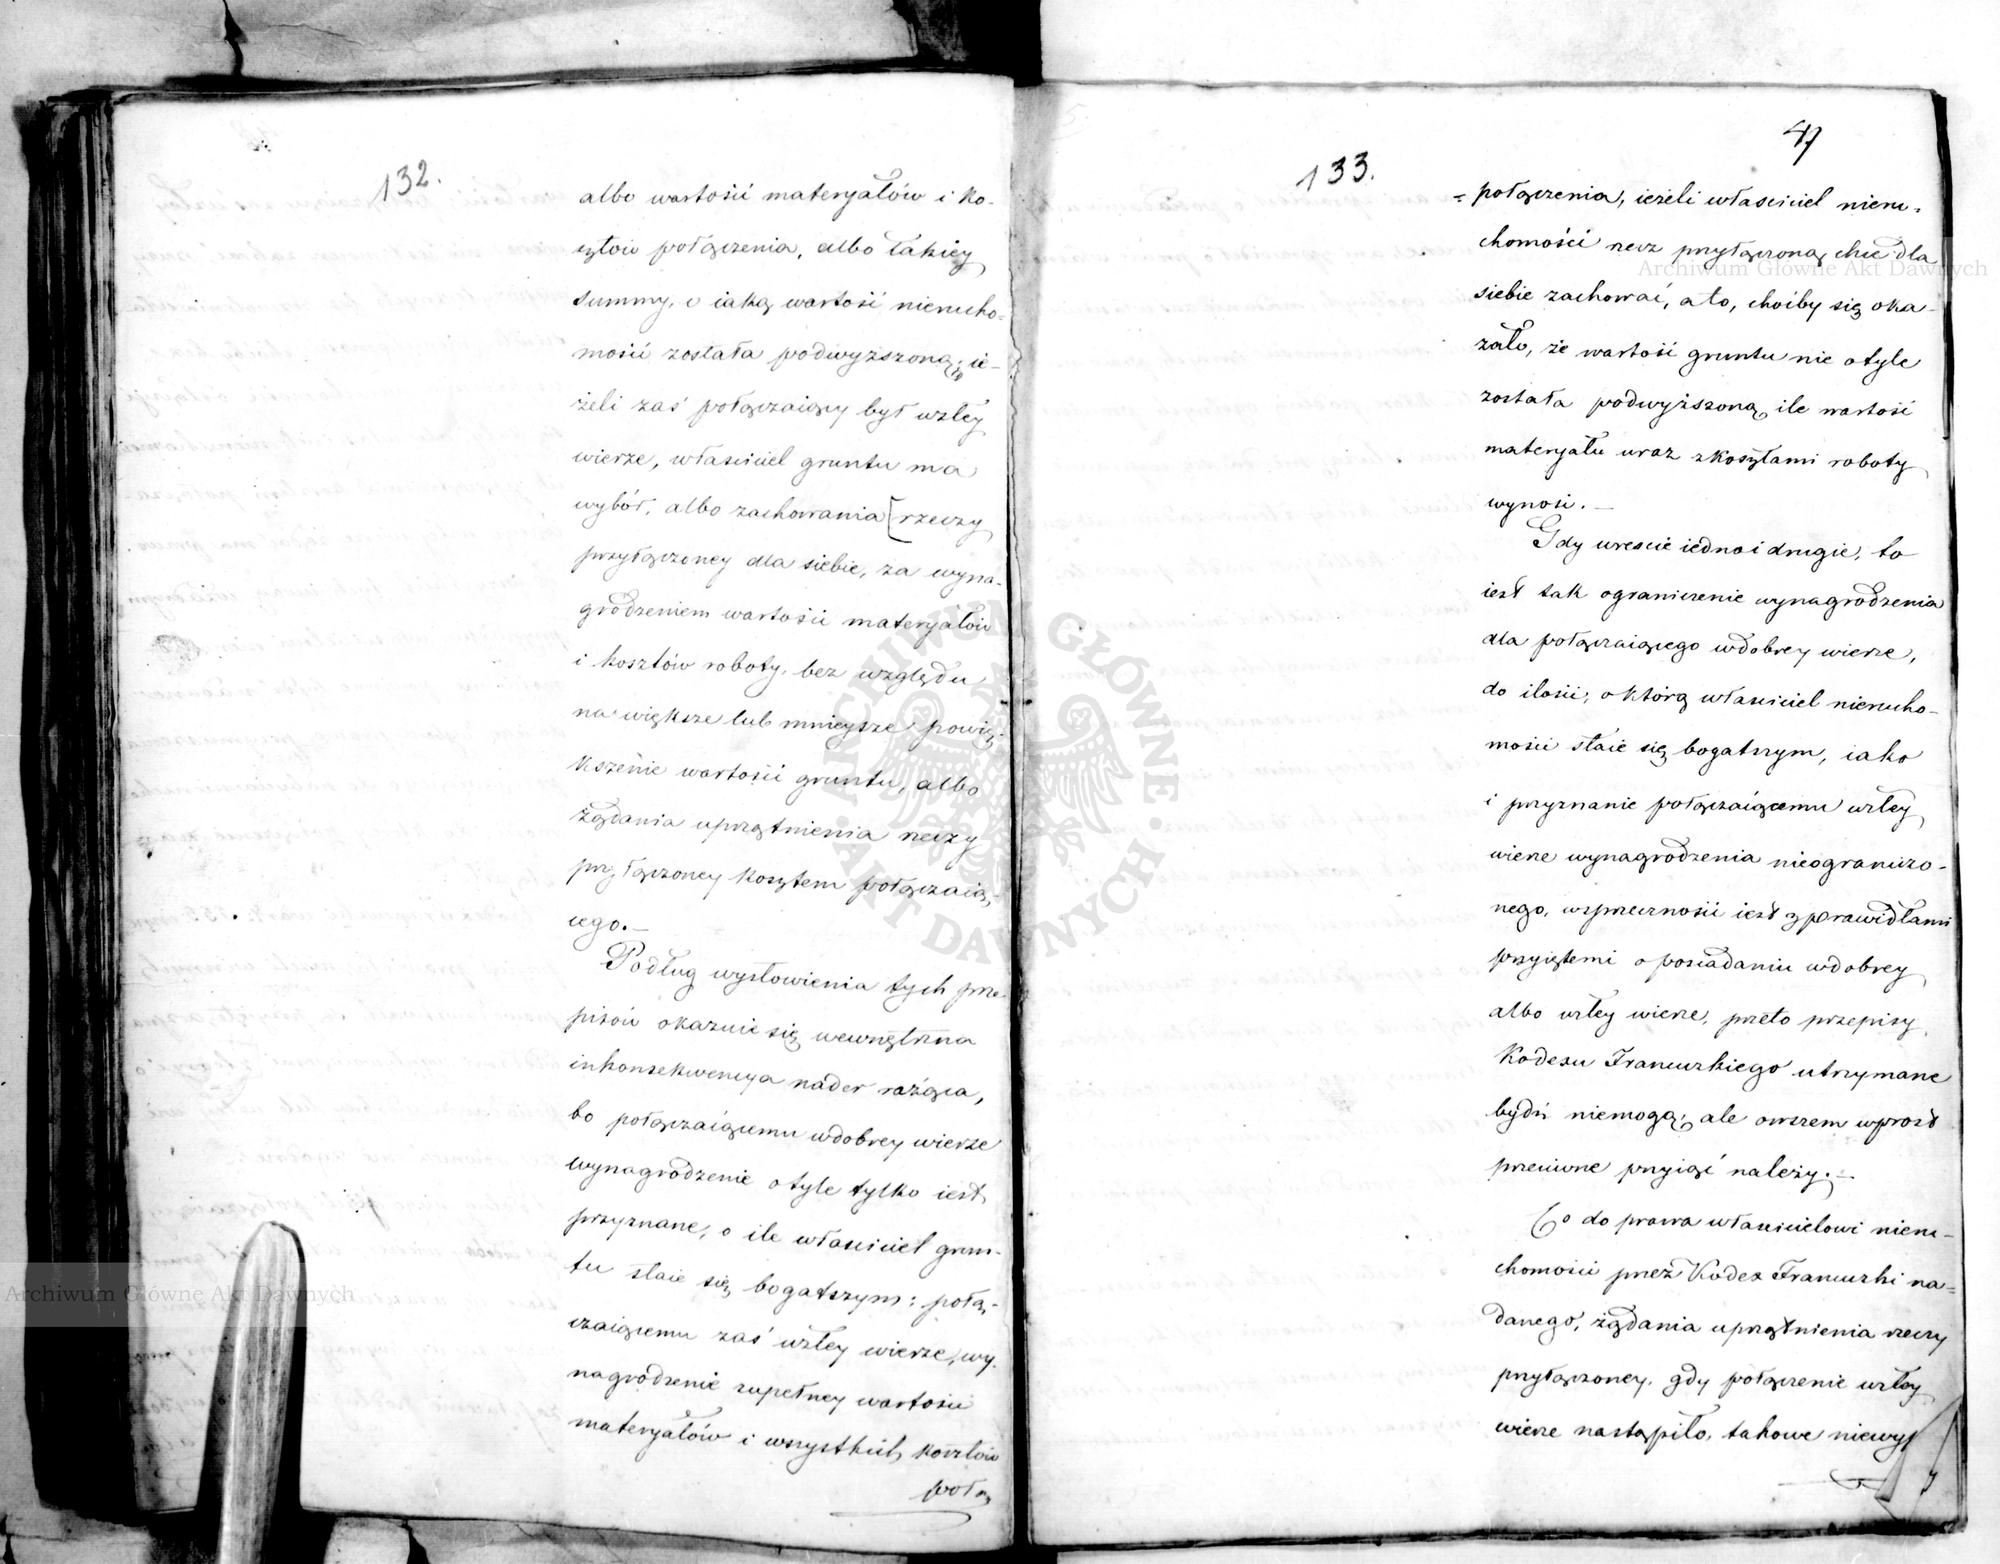 132.
albo wartości materyałów i ko-
sztów połączenia, albo takiey
summy, o iaką wartość nierucho-
mości została podwyższoną; ie-
żeli zaś połączaiący był wzłey
wierze, właściciel gruntu ma
wybór, albo zachowania [rzeczy
przyłączoney dla siebie, za wyna-
grodzeniem wartości materyałów
i kosztów roboty, bez względu
na większe lub mnieysze powię-
kszenie wartości gruntu, albo
żądania uprzątnienia rzeczy
przyłączoney kosztem połączaią-
cego.—
Podług wysłowienia tych prze-
pisów okazuie się wewnętrzna
inkonsekwencya nader rażąca,
bo połączaiącemu wdobrey wierze
wynagrodzenie otyle tylko iest
przyznane, o ile właściciel grun-
tu staie się bogatszym: połą-
czaiącemu zaś wzłey wierze, wy-
nagrodzenie zupełney wartości
materyałów i wszystkich kosztów
połą
47
133.
= połączenia, ieżeli właściciel nieru-
chomości rzecz przyłączoną chce dla
siebie zachować, a to, choćby się oka-
zało, że wartość gruntu nie otyle
została podwyższoną, ile wartość
materyału wraz zkosztami roboty
wynosi.—
Gdy wreście iedno i drugie, to
iest tak ograniczenie wynagrodzenia
dla połączaiącego wdobrey wierze,
do ilości, o którą właściciel nierucho-
mości staie się bogatszym, iako
i przyznanie połączaiącemu wzłey
wierze wynagrodzenia nieograniczo-
nego, wsprzeczności iest z prawidłami
przyiętemi o posiadaniu wdobrey
albo wzłey wierze, przeto przepisy
Kodexu Francuzkiego utrzymane
bydź niemogą, ale owszem wprost
przeciwne przyiąć należy.—
Co do prawa właścicielowi nieru-
chomości przez Kodex Francuzki na-
danego, żądania uprzątnienia rzeczy
przyłączoney, gdy połączenie wzłey
wierze nastąpiło, takowe niewy
Archiwum Główne Akt Dawnych
Archiwum Główne Akt Dawnych
ARCHIWUM GŁÓWNE · AKT DAWNYCH ·